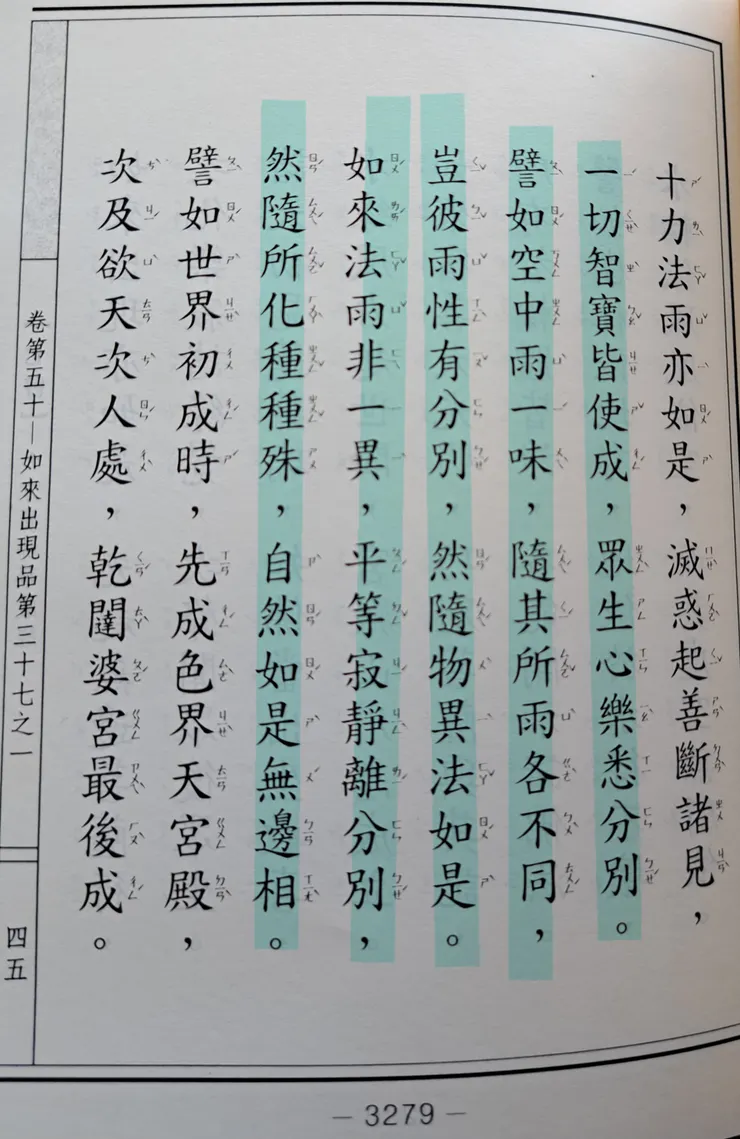 十力法雨亦如是，滅惑起善斷諸見，
一切智寶皆使成，眾生心樂悉分別。
譬如空中雨一味，隨其所雨各不同，
豈彼雨性有分別，然隨物異法如是。
如來法雨非一異，平等寂靜離分別，
然隨所化種種殊，自然如是無邊相。
譬如世界初成時，先成色界天宮殿，
次及欲天次人處，乾闥婆宮最後成。
卷第五十—如來出現品第三十七之一
四五
- 3279 -